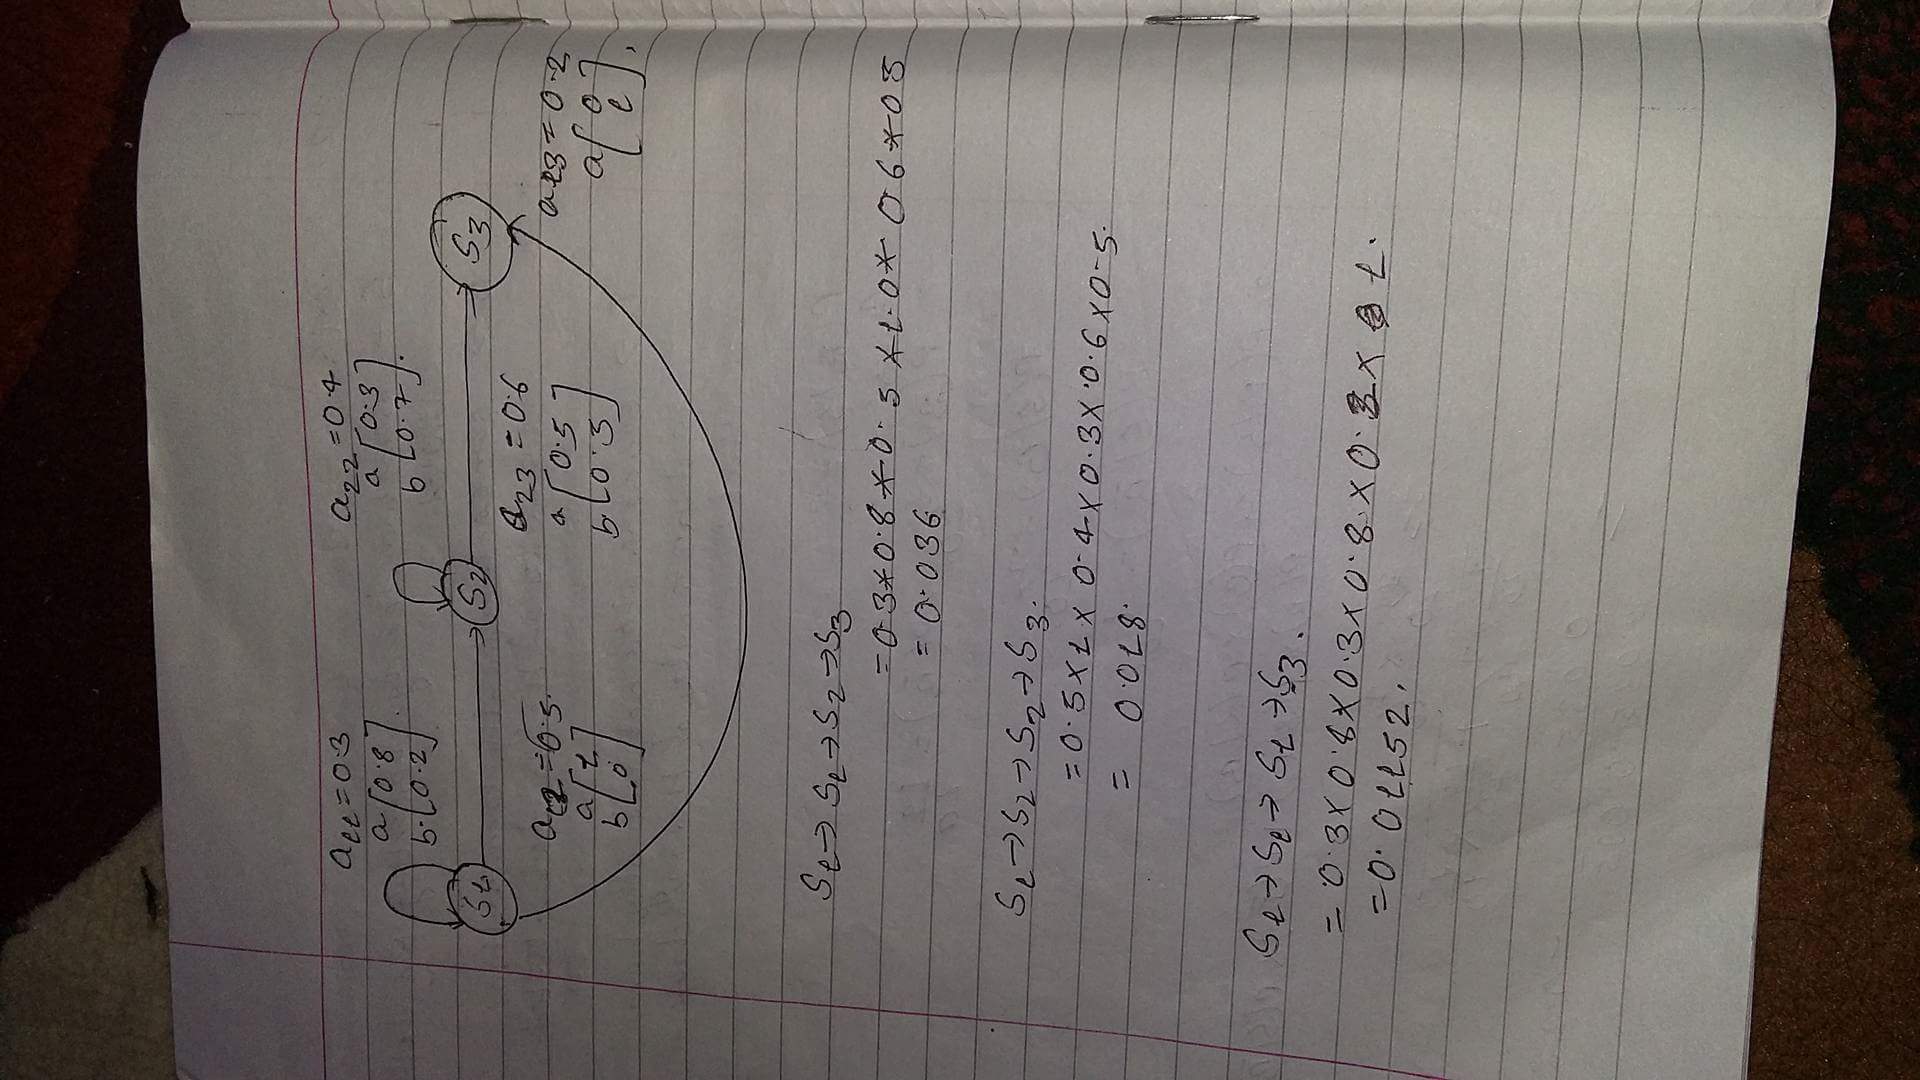 a11 = 0.3
a [0.8]
b [0.2]
a22 = 0.4
a [0.3]
b [0.7]
S1
S2
S3
a12 = 0.5
a [1]
b [0]
a23 = 0.6
a [0.5]
b [0.5]
a13 = 0.2
a [0
1]
S1 → S1 → S2 → S3
= 0.3 * 0.8 * 0.5 * 1.0 * 0.6 * 0.5
= 0.036
S1 → S2 → S2 → S3.
= 0.5 × 1 × 0.4 × 0.3 × 0.6 × 0.5.
= 0.018
S1 → S1 → S1 → S3.
= 0.3 × 0.8 × 0.3 × 0.8 × 0.2 × 1.
= 0.01152.